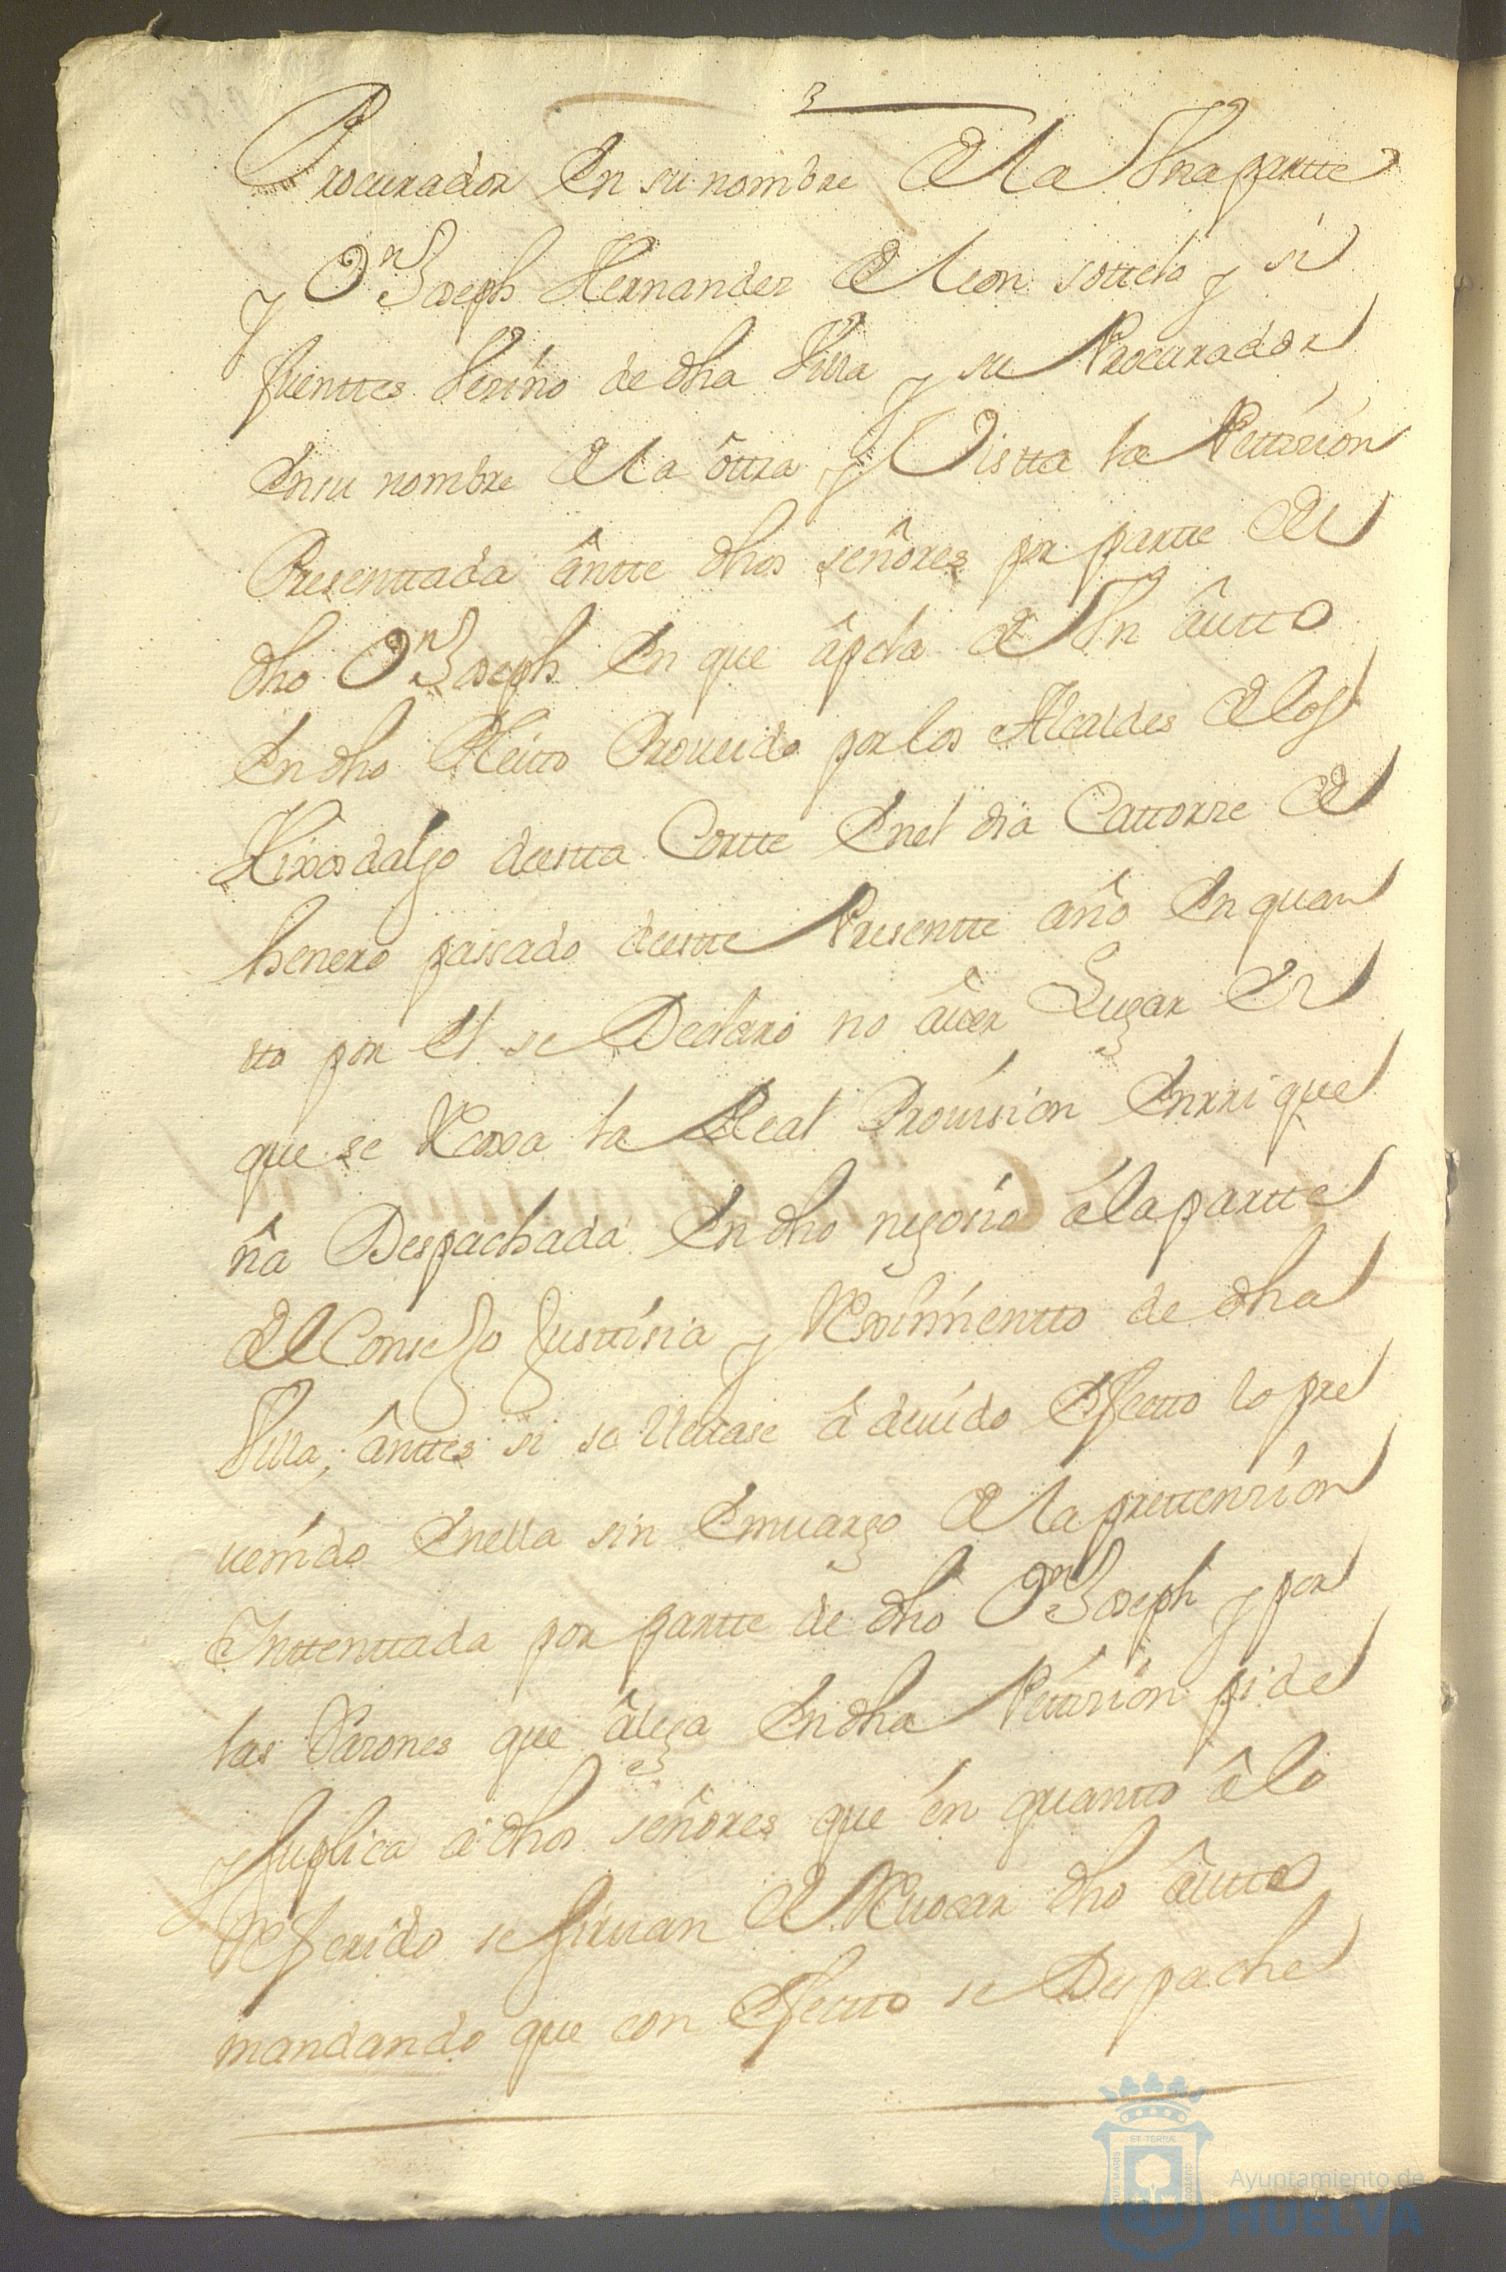 3
Procurador En su nombre De la Vna partte
y Dn Joseph Hernandez De leon sottelo y si
fuenttes Vezíno de dha Villa y su Procurador
En su nombre De la ôttra y Vistta la Pettizíón
Presenttada ântte dhos señores por partte Del
dho Dn Joseph En que âpela De Vn âutto
En dho Pleitto Proueido por los Alcaldes De los
Hixosdalgo deestta Cortte En el dia Cattorze De
henero passado deestte Presentte año En quan
tto por El se Declaro no âuer Lugar En
que se Recoxa la Real Prouísíon Enrrique
ña Despachada En dho negozío á la partte
Del Consejo Justtísía y Rexímíentto de dha
Villa; ânttes si se lleuase â deuído Efectto lo pre
uenído En ella sin Emuargo De la prettenzíon
Inttenttada por partte de dho Dn Joseph y por
las Razones que âlega En dha Pettizíón pide
y suplica â dhos señores que én quantto â lo
Referido se siruan De Reuocar dho âutto
mandando que con Efectto se Despache
Ayuntamiento de
HUELVA